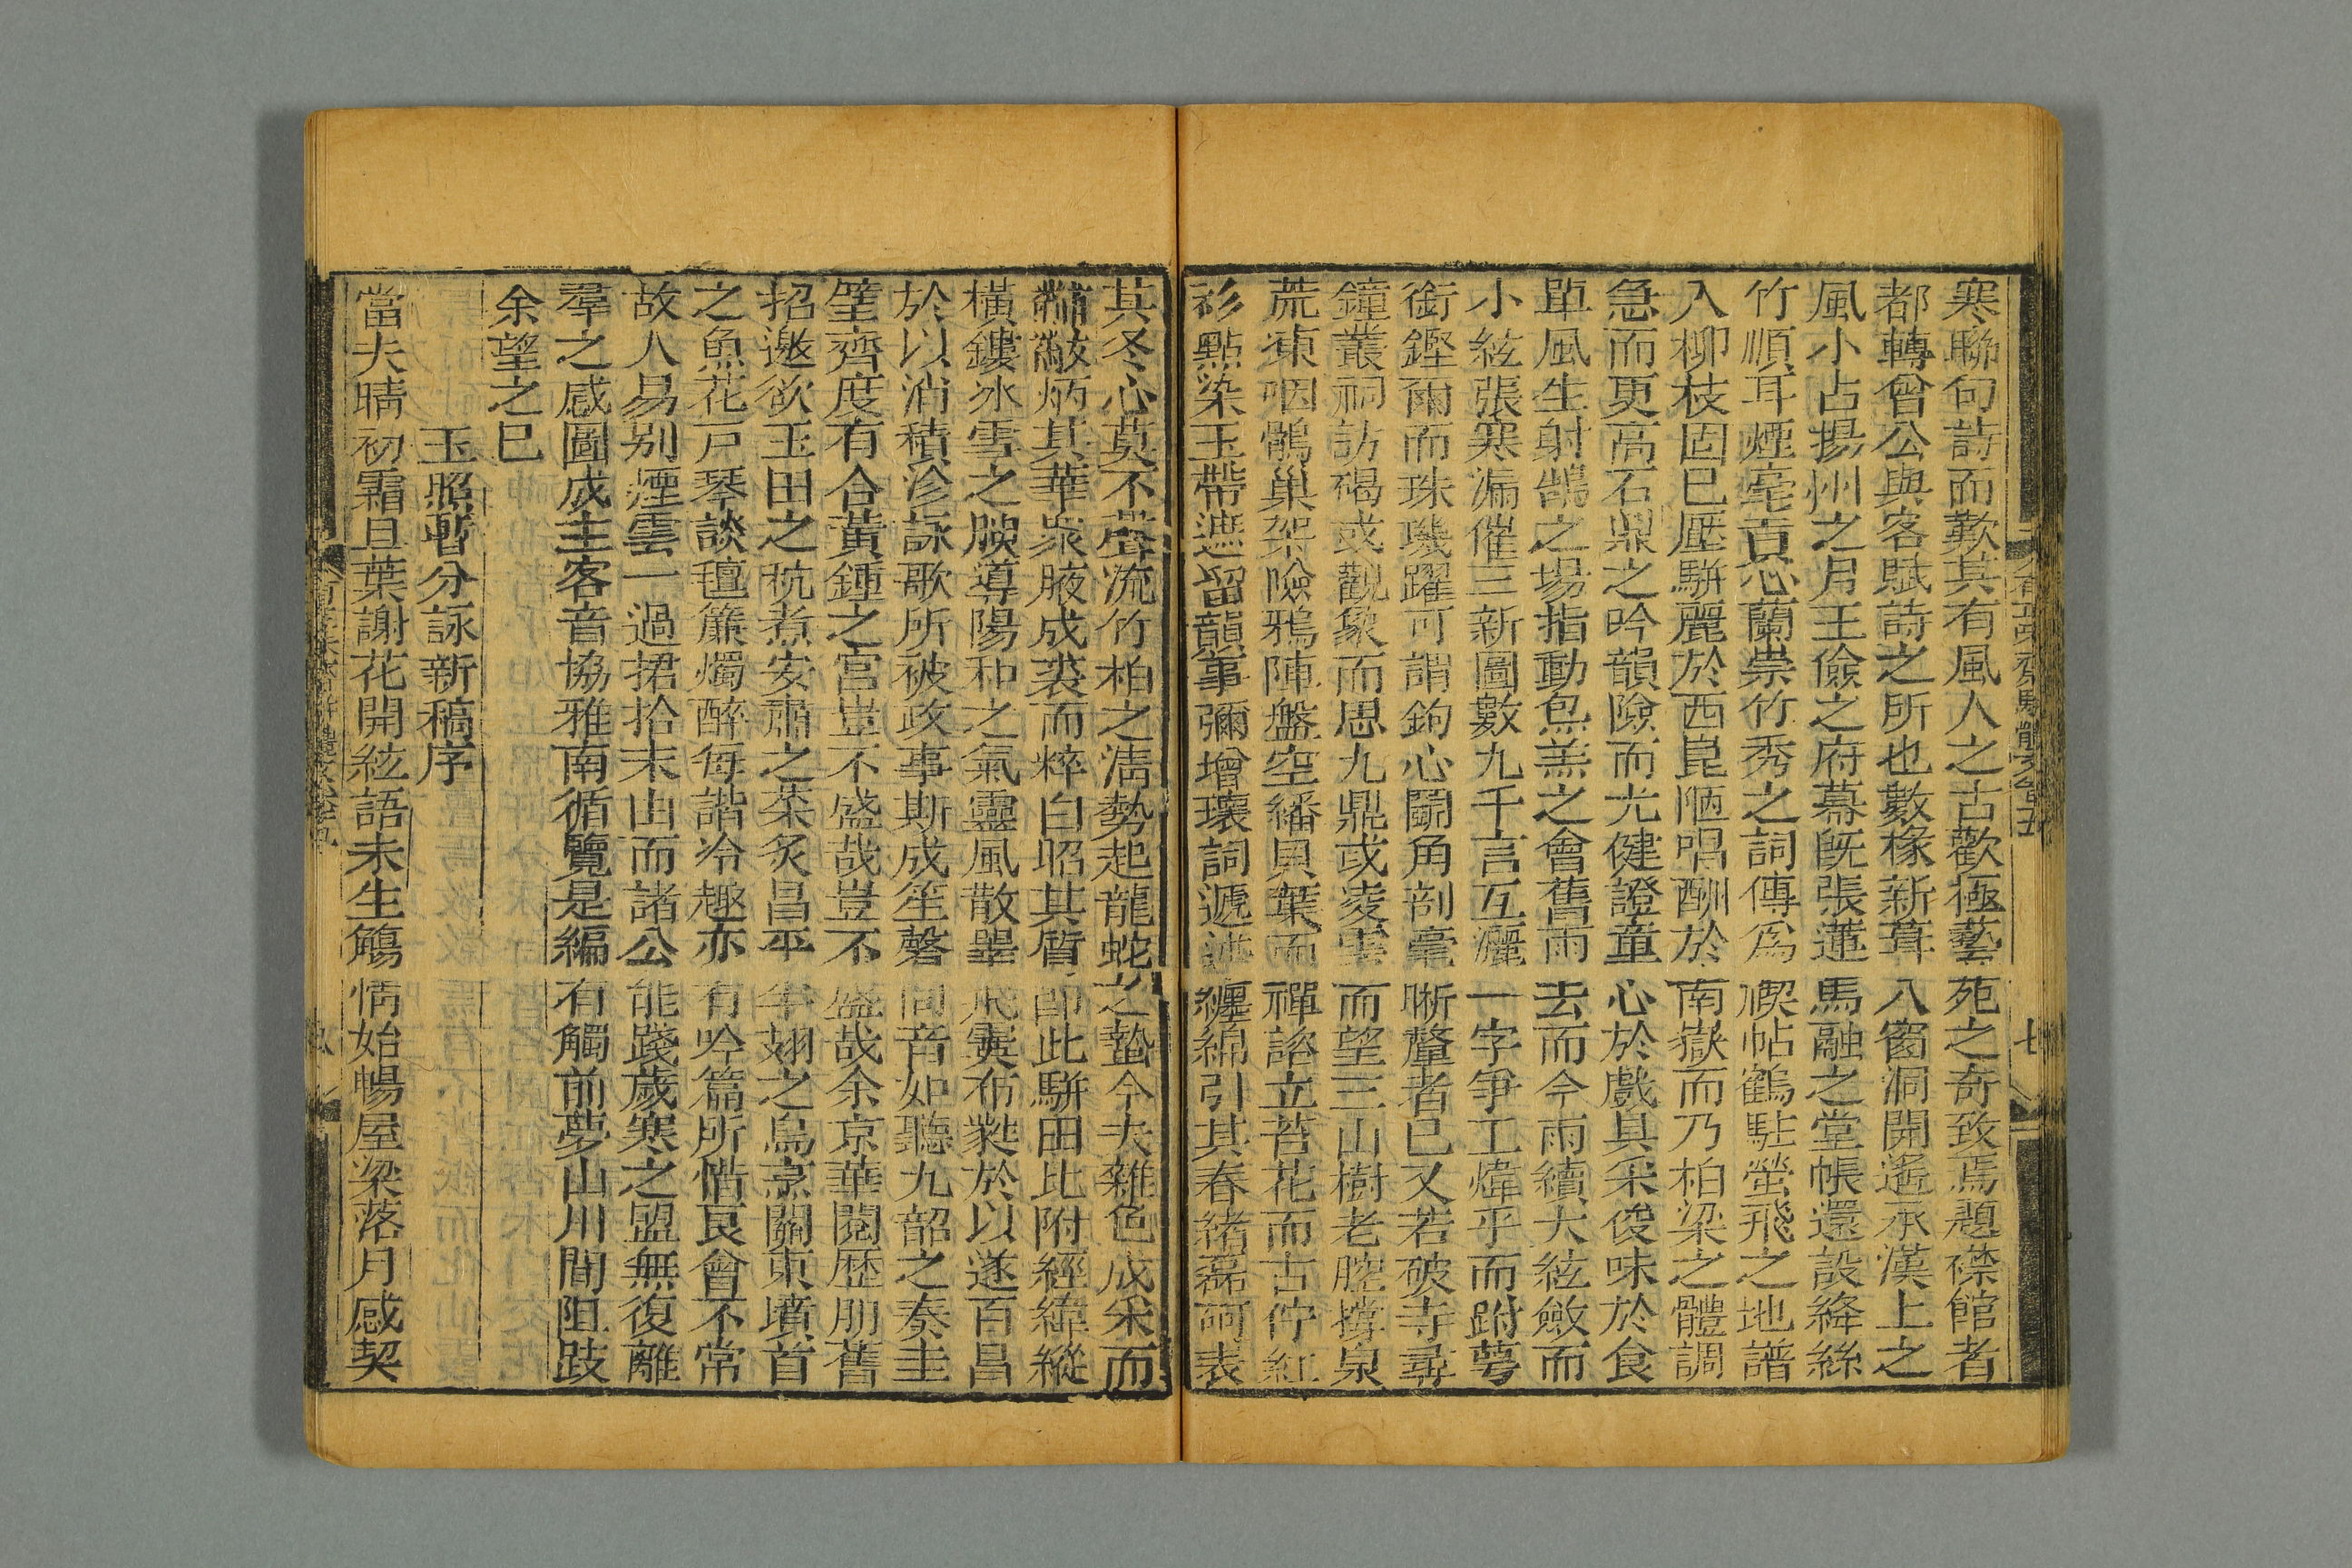 寒聯句詩而歎其有風人之古歡極藝苑之奇致焉題襟館者
都轉曾公與客賦詩之所也數椽新葺八窗洞開遙承漢上之
風小占揚州之月王儉之府幕旣張蓮馬融之堂帳還設絳絲
竹順耳煙毫貢心蘭崇竹秀之詞傳爲禊帖鶴駐螢飛之地譜
入柳枝固已壓駢麗於西崑陋唱酬於南嶽而乃柏梁之體調
急而更高石鼎之吟韻險而尤健證童心於戲具采俊味於食
單風生射鵠之場指動炰羔之會舊雨去而今雨續大絃斂而
小絃張寒漏催三新圖數九千言互灑一字爭工煒乎而跗萼
銜鏗爾而珠璣躍可謂鉤心鬬角剖毫晰氂者已又若破寺尋
鐘叢祠訪碣或觀象而思九鼎或凌雲而望三山樹老腔撐泉
荒凍咽鶻巢架險鴉陣盤空繙貝葉而禪諮立苔花而古佇紅
衫點染玉帶遮留韻事彌增瓌詞遞述纏綿引其春緒磊砢表
其冬心莫不聲流竹柏之淸勢起龍蛇之蟄今夫雜色成采而
黼黻炳其華衆腋成裘而粹白昭其質卽此駢田比附經緯縱
橫鏤冰雪之牋導陽和之氣靈風散畢飛霙布㲠於以遂百昌
於以消積沴詠歌所被政事斯成笙磬同音如聽九韶之奏圭
筀齊度有合黃鍾之宮豈不盛哉豈不盛哉余京華閱歷朋舊
招邀飲玉田之秔煮安肅之菜炙昌平牟翅之烏烹關東墳首
之魚花戸琴談氊簾燭醉每諧冷趣亦有吟篇所惜良會不常
故人易别煙雲一過捃拾末由而諸公能踐歲寒之盟無復離
羣之感圖成主客音協雅南循覽是編有觸前夢山川間阻跂
余望之已
玉照暫分詠新稿序
當夫晴初霜旦葉謝花開絃語未生觴情始暢屋梁落月感契